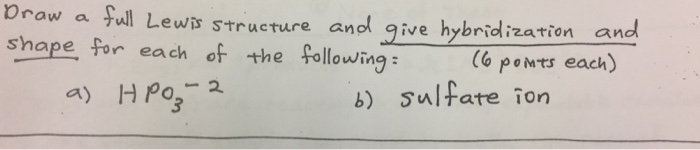 Draw a full Lewis structure and give hybridization and
shape for each of the following: (6 points each)
a) HPO₃⁻² b) sulfate ion